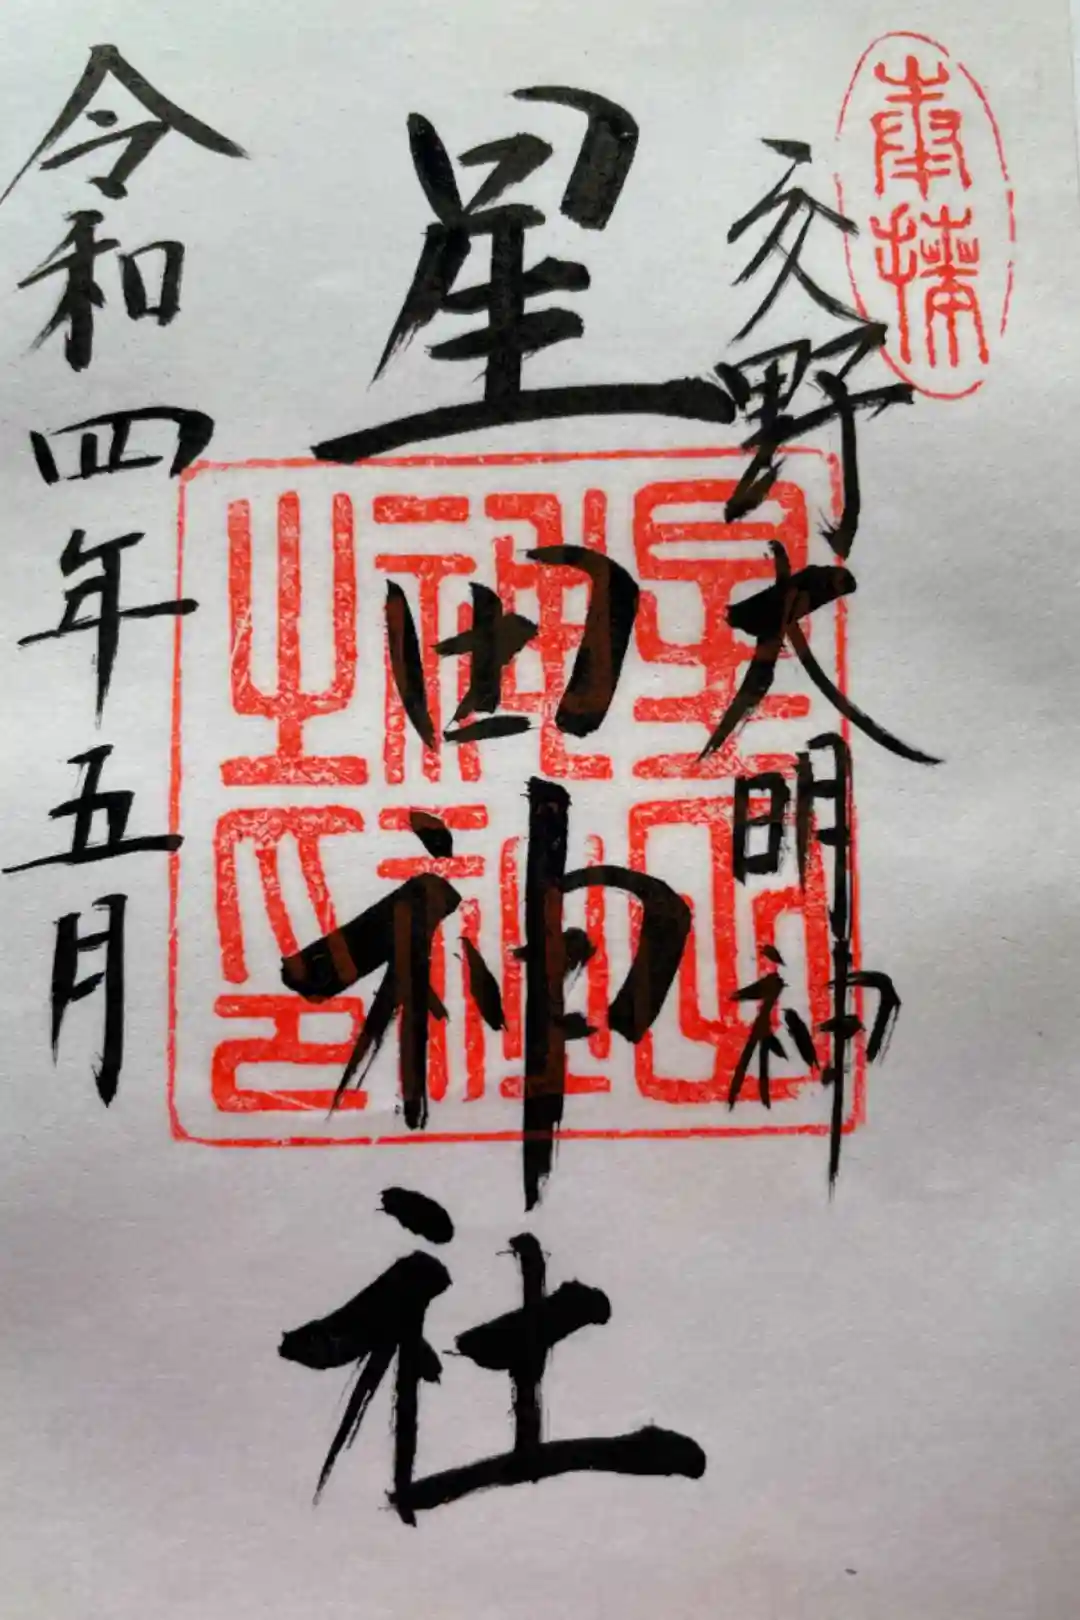 奉拝
交野大明神
星田神社
星田
神社
之印
令和四年五月